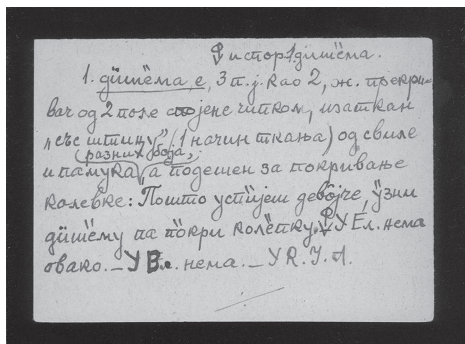 и стор 1 дӥшёма.
1. дӥшёма е, 3 п. ј. као 2, ж. прекри-
вач од 2 поле спојене чипком, изаткан
„със штицу” (1 начин ткања) од свиле
(разних боја,
и памука, а подешен за покривање
колевке: Пошто успијеш девојче, узни
дӥшёму па покри колепку. У Ел. нема
овако. – У Вл. нема. – У R. J. A.